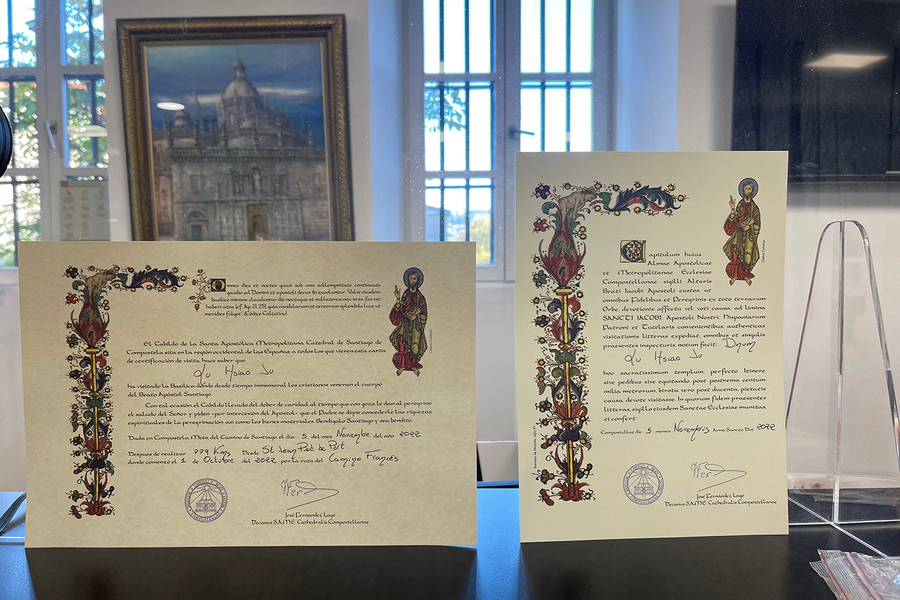 Omnes dies et noctes quasi sub una sollempnitate continuato
gaudio ad Domini et apostoli decus ibi excoluntur. Valve eiusdem
basilice minime clauduntur die noctuque et nullatenus nox in ea fas est
haberi atra [cf. Ap 21, 25], quia candelarum et cereorum splendida luce ut
meridies fulget". (Codex Calixtino)
El Cabildo de la Santa Apostólica Metropolitana Catedral de Santiago de
Compostela sita en la región occidental de las Españas, a todos los que vieren esta carta
de certificación de visita, hace saber que:
Qu Hsiao Ju
ha visitado la Basílica donde desde tiempo inmemorial los cristianos veneran el cuerpo
del Beato Apóstol Santiago.
Con tal ocasión el Cabildo llevado del deber de caridad, al tiempo que con gozo le dan al peregrino
el saludo del Señor y piden -por intercesión del Apóstol- que el Padre se digne concederle las riquezas
espirituales de la peregrinación así como los bienes materiales. Bendígalo Santiago y sea bendito.
Dada en Compostela, Meta del Camino de Santiago el día 5 del mes Noviembre del año 2022
Después de realizar 779 Kms Desde St Jean Pied de Port
donde comenzó el 1 de Octubre del 2022 por la ruta del Camino Francés
José Fernández Lago
Decanus S.A.M.E. Cathedralis Compostellanae
Capitulum huius
Almae Apostolicae
et Metropolitanae Ecclesiae
Compostellanae, sigilli Altaris
Beati Iacobi Apostoli custos, ut
omnibus Fidelibus et Peregrinis ex toto terrarum
Orbe, devotionis affectu vel voti causa, ad limina
SANCTI IACOBI Apostoli Nostri, Hispaniarum
Patroni et Tutelaris convenientibus, authenticas
visitationis litteras expediat, omnibus et singulis
praesentes inspecturis, notum facit: Dnum
Qu Hsiao Ju
hoc sacratissimum templum, perfecto itinere
sive pedibus sive equitando post postrema centum
milia metrorum, birota vero post ducenta, pietatis
causa, devote visitasse. In quorum fidem praesentes
litteras, sigillo eiusdem Sanctae Ecclesiae munitas,
ei confert.
Compostellae die 5 mensis Novembris Anno Sancto Dni 2022
José Fernández Lago
Decanus S.A.M.E. Cathedralis Compostellanae